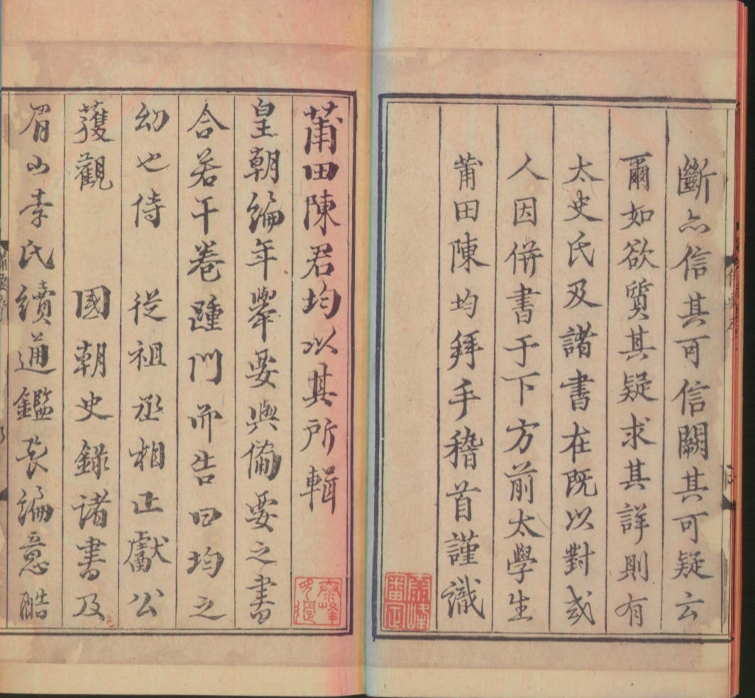 斷亦信其可信闕其可疑云
爾如欲質其疑求其詳則有
太史氏及諸書在既以對或
人因併書于下方前太學生
莆田陳均拜手稽首謹識
莆田陳君均以其所輯
皇朝編年舉要與備要之書
合若干卷踵門而告曰均之
幼也侍　從祖丞相正獻公
獲觀　國朝史錄諸書及
眉山李氏續通鑑長編意酷